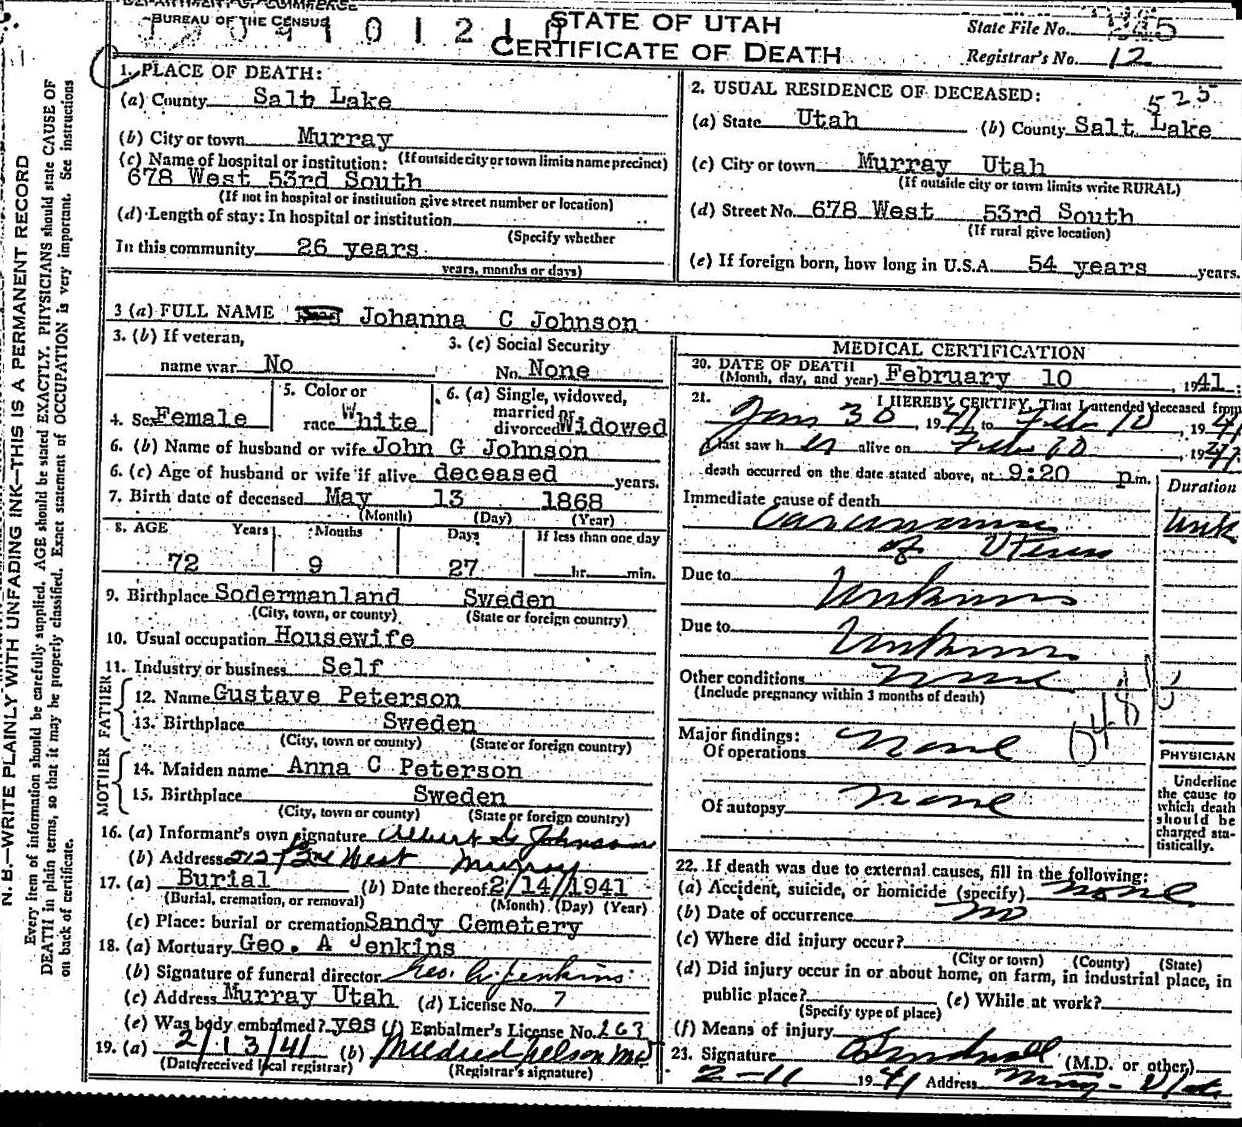 DEPARTMENT OF COMMERCE
BUREAU OF THE CENSUS
STATE OF UTAH
CERTIFICATE OF DEATH
State File No.
Registrar's No. 12
1. PLACE OF DEATH:
(a) County Salt Lake
(b) City or town Murray
(If outside city or town limits name precinct)
(c) Name of hospital or institution:
678 West 53rd South
(If not in hospital or institution give street number or location)
(d) Length of stay: In hospital or institution
(Specify whether
In this community 26 years
years, months or days)
2. USUAL RESIDENCE OF DECEASED:
525
(a) State Utah (b) County Salt Lake
(c) City or town Murray Utah
(If outside city or town limits write RURAL)
(d) Street No. 678 West 53rd South
(If rural give location)
(e) If foreign born, how long in U.S.A. 54 years years.
3 (a) FULL NAME Johanna C Johnson
3. (b) If veteran,
name war No
3. (c) Social Security
No. None
4. Sex Female
5. Color or
race White
6. (a) Single, widowed,
married or
divorced Widowed
6. (b) Name of husband or wife John G Johnson
6. (c) Age of husband or wife if alive deceased years.
7. Birth date of deceased May 13 1868
(Month) (Day) (Year)
8. AGE Years Months Days If less than one day
72 9 27 hr. min.
9. Birthplace Sodermanland Sweden
(City, town, or county) (State or foreign country)
10. Usual occupation Housewife
11. Industry or business Self
FATHER
12. Name Gustave Peterson
13. Birthplace Sweden
(City, town or county) (State or foreign country)
MOTHER
14. Maiden name Anna C Peterson
15. Birthplace Sweden
(City, town or county) (State or foreign country)
16. (a) Informant's own signature Albert G Johnson
(b) Address West Murray
17. (a) Burial (b) Date thereof 2/14/1941
(Burial, cremation, or removal) (Month) (Day) (Year)
(c) Place: burial or cremation Sandy Cemetery
18. (a) Mortuary Geo. A Jenkins
(b) Signature of funeral director Geo. A. Jenkins
(c) Address Murray Utah (d) License No. 7
(e) Was body embalmed? yes (f) Embalmer's License No. 263
19. (a) 2/13/41 (b) Mildred Nelson MD
(Date received local registrar) (Registrar's signature)
MEDICAL CERTIFICATION
20. DATE OF DEATH
(Month, day, and year) February 10, 1941
21. I HEREBY CERTIFY, That I attended deceased from
Jan 30, 1941, to Feb 10, 1941
I last saw her alive on Feb 10, 1941
death occurred on the date stated above, at 9:20 p.m.
Duration
Immediate cause of death
Carcinoma Unk
of Uterus
Due to Unknown
Due to Unknown
Other conditions none
(Include pregnancy within 3 months of death)
Major findings:
Of operations none
Of autopsy none
PHYSICIAN
Underline
the cause to
which death
should be
charged sta-
tistically.
22. If death was due to external causes, fill in the following:
(a) Accident, suicide, or homicide (specify) none
(b) Date of occurrence no
(c) Where did injury occur?
(City or town) (County) (State)
(d) Did injury occur in or about home, on farm, in industrial place, in
public place? (e) While at work?
(Specify type of place)
(f) Means of injury
23. Signature (M.D. or other)
2-11 1941 Address Murray - Utah
N. B.—WRITE PLAINLY WITH UNFADING INK—THIS IS A PERMANENT RECORD
Every item of information should be carefully supplied. AGE should be stated EXACTLY. PHYSICIANS should state CAUSE OF
DEATH in plain terms, so that it may be properly classified. Exact statement of OCCUPATION is very important. See instructions
on back of certificate.